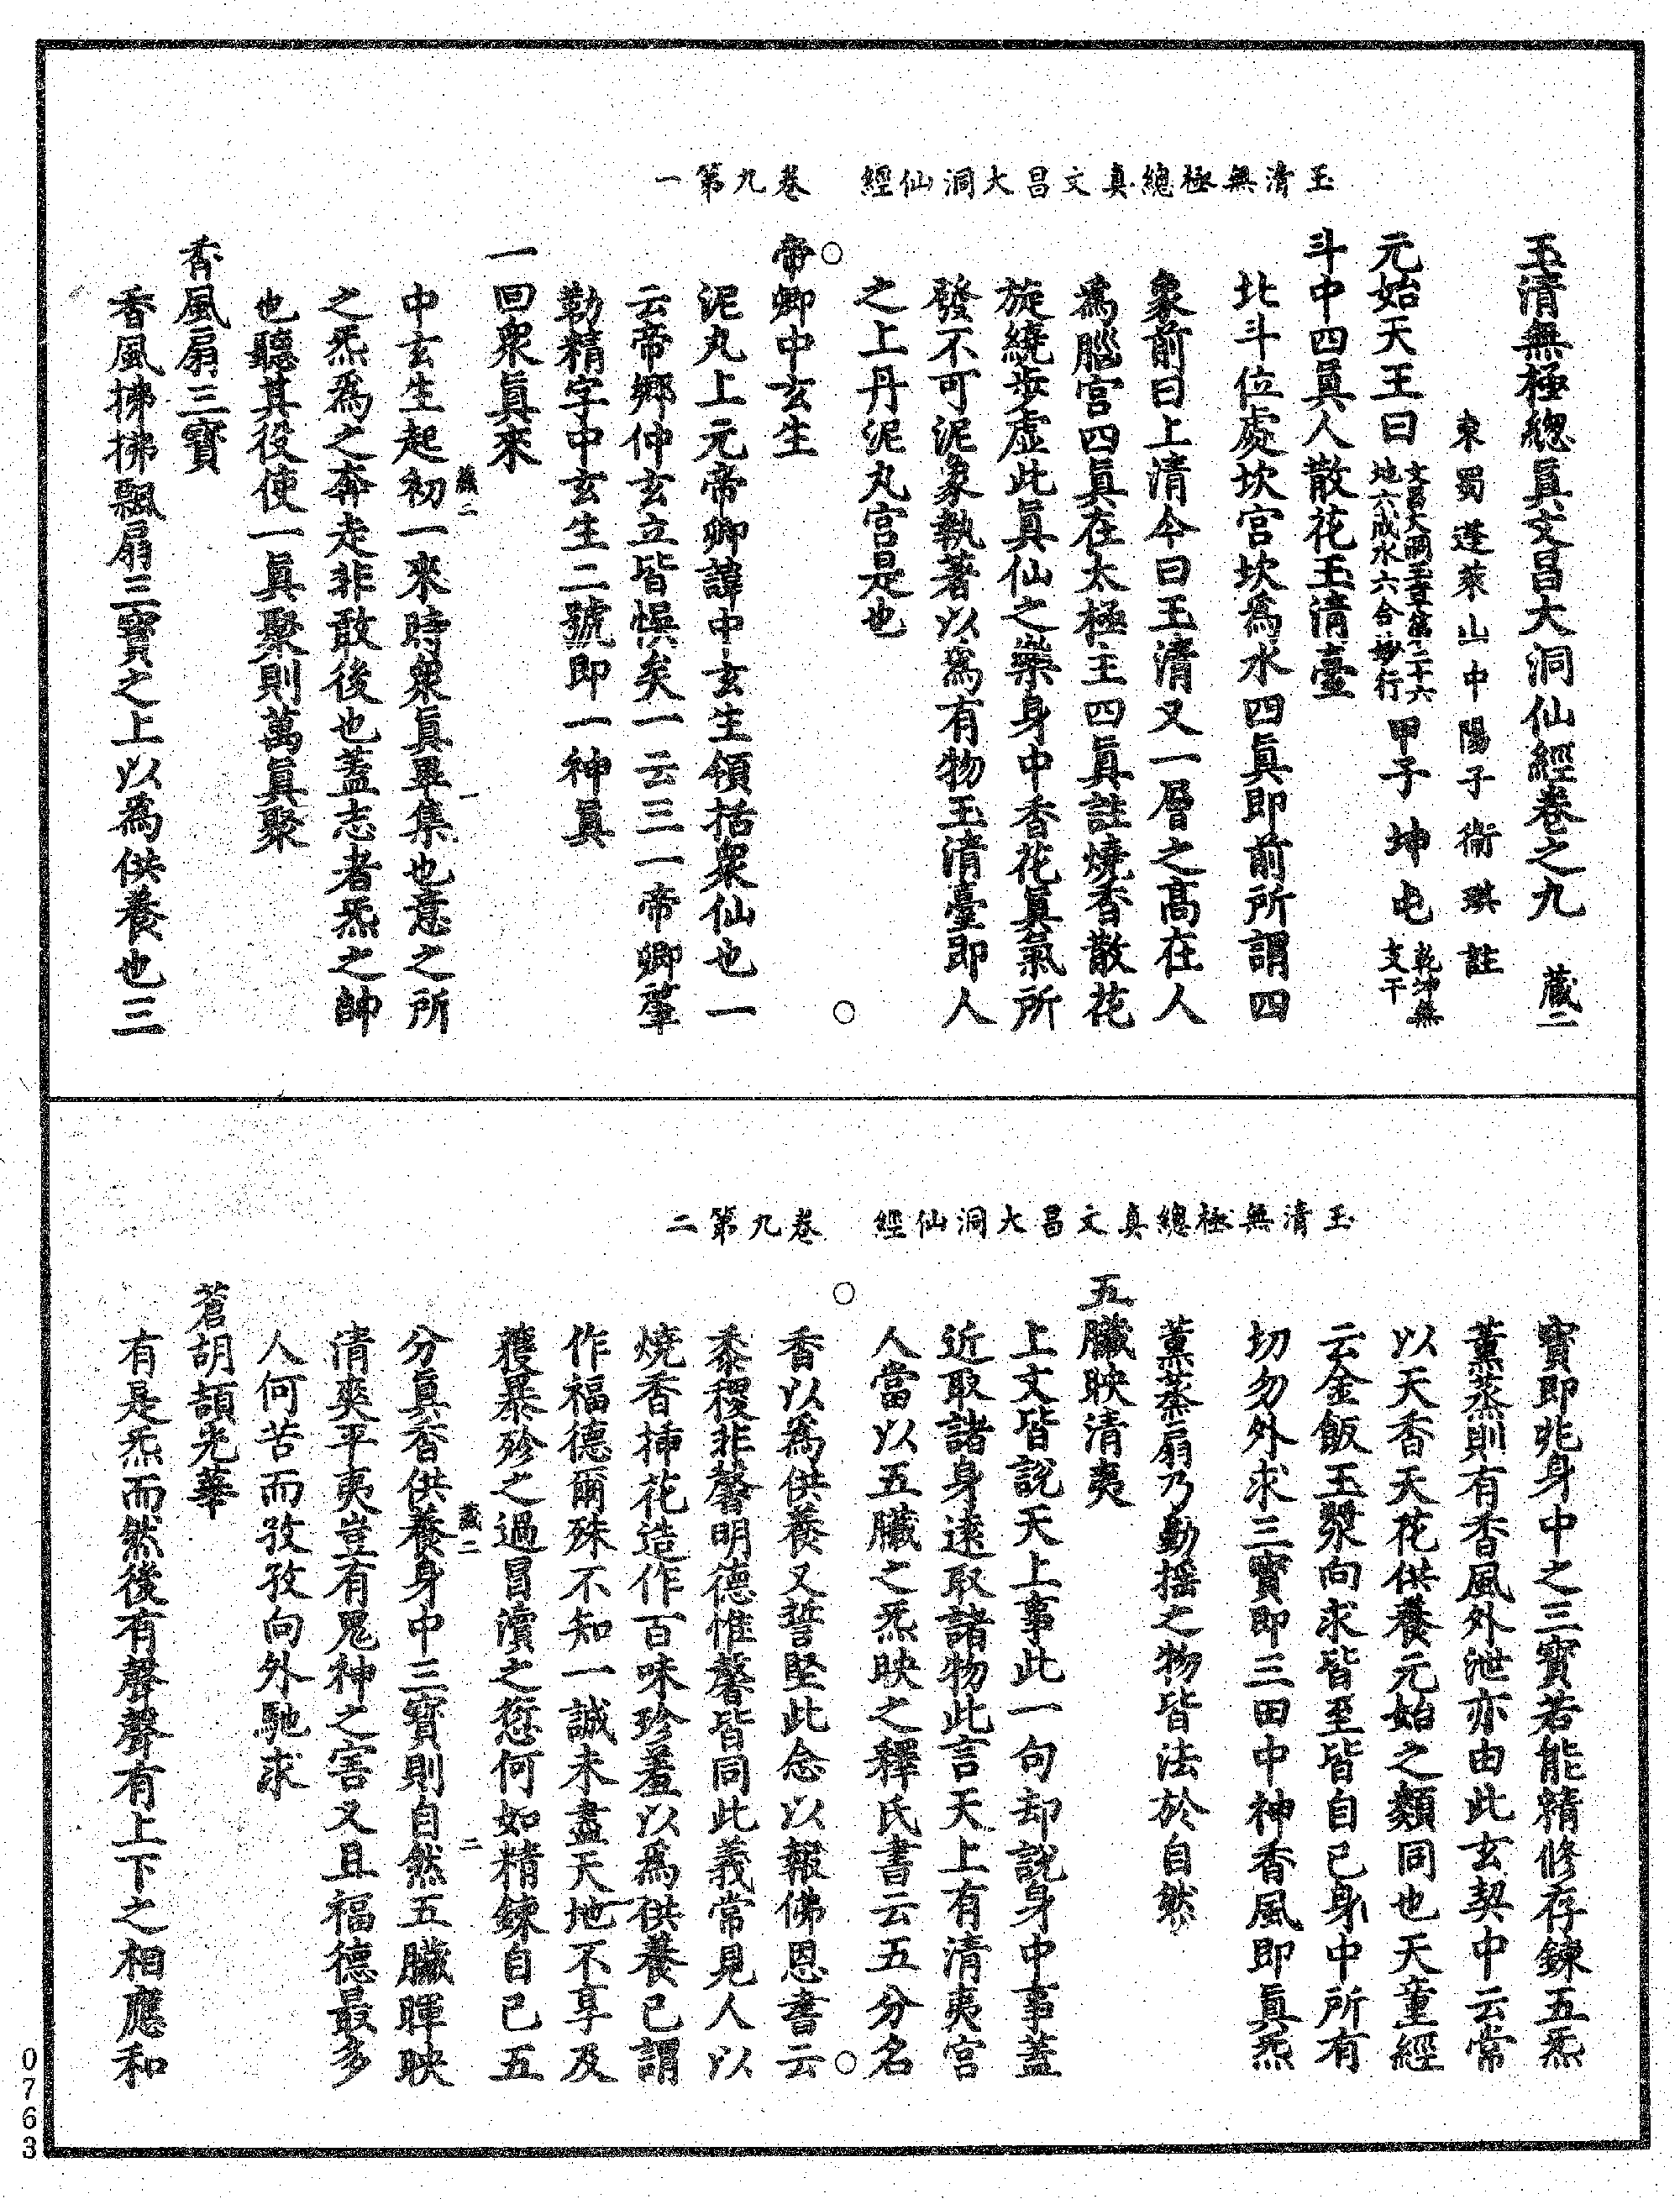 玉清無極總真文昌大洞仙經　卷九第一
玉清無極總眞文昌大洞仙經卷之九　藏二
東蜀蓬萊山中陽子衞琪註
元始天王曰文昌大洞玉章第二十六地六成水六合妙行甲子坤屯支干
斗中四眞人散花玉清臺
北斗位處坎宫坎爲水四眞即前所謂四
象前曰上清今曰玉清又一層之高在人
爲腦宫四眞在太極主四眞註燒香散花
旋繞步虚此眞仙之樂身中香花眞氣所
發不可泥象執著以爲有物玉清臺即人
之上丹泥丸宫是也
帝卿中玄生
泥丸上元帝卿諱中玄生領括衆仙也一
云帝鄉仲玄立皆悞矣一云三一帝卿肇
勒精字中玄生二號即一神眞
一回衆眞來
中玄生起初一來時衆眞畢集也意之所
之炁爲之奔走非敢後也蓋志者炁之帥
也聽其役使一眞聚則萬眞聚
香風扇三寶
香風拂拂飄扇三寶之上以爲供養也三
藏二　一
玉清無極總真文昌大洞仙經　卷九第二
寶即兆身中之三寶若能精修存鍊五炁
薰蒸則有香風外泄亦由此玄契中云常
以天香天花供養元始之類同也天童經
云金飯玉漿向求皆至皆自已身中所有
切勿外求三寶即三田中神香風即眞炁
薰蒸扇乃動摇之物皆法於自然
五臟映清夷
上文皆說天上事此一句却說身中事蓋
近取諸身遠取諸物此言天上有清夷宫
人當以五臟之炁映之釋氏書云五分名
香以爲供養又誓堅此念以報佛恩書云
黍稷非馨明德惟馨皆同此義常見人以
燒香揷花造作百味珍羞以爲供養已謂
作福德爾殊不知一誠未盡天地不享及
獲暴殄之過冒瀆之愆何如精鍊自已五
分眞香供養身中三寶則自然五臟暉映
清爽平夷豈有鬼神之害又且福德最多
人何苦而孜孜向外馳求
蒼胡頡光華
有是炁而然後有聲聲有上下之相應和
藏二　二
0763